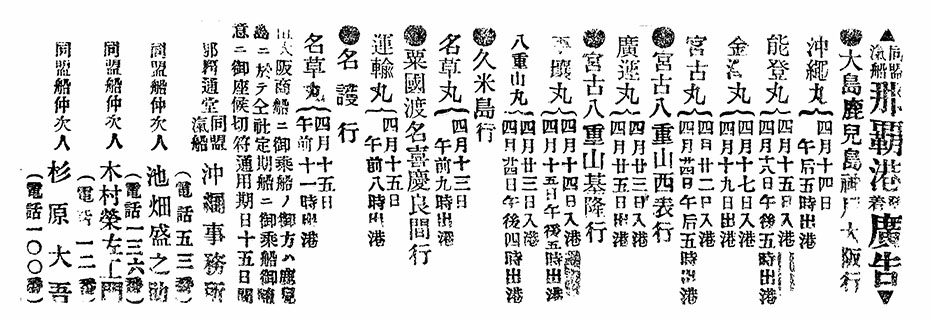 ▲同盟汽船那覇港發着廣告▼
●大島鹿兒島神戸大阪行
沖繩丸 四月十四日 午后五時出港
能登丸 四月十五日入港 四月十八日午後五時出港
金 丸 四月十七日入港 四月十九日出港
宮古丸 四月廿二日入港 四月廿四日午后五時出港
●宮古八重山西表行
廣運丸 四月廿三日入港 四月廿五日出港
●宮古八重山基隆行
丸 四月十四日入港 四月十五日午後五時出港
八重山丸 四月 日入港 四月廿四日午後四時出港
●久米島行
名草丸 四月十三日 午前九時出港
●粟國渡名喜慶良間行
運輸丸 四月十五日 午前八時出港
●名護行
名草丸 四月十五日 午前十一時出港
大阪商船ニ御乘船ノ御方ハ鹿兒
島ニ於テ仝社定期船ニ御乘船御隨
意ニ御座候切符通用期日十五日間
那覇通堂 同盟汽船 沖繩事務所
(電話五三番)
同盟船仲次人 池畑盛之助
(電話一三六番)
同盟船仲次人 木村榮左工門
(電話一二番)
同盟船仲次人 杉原大吾
(電話一〇〇番)